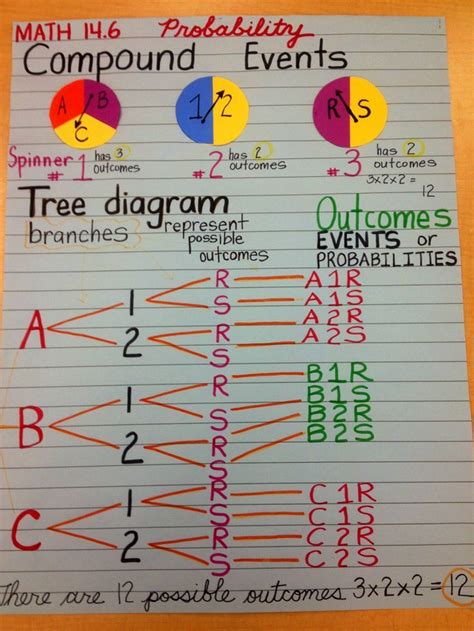 MATH 14.6 Probability
Compound Events
A B C
1 2
R S
Spinner # 1 has 3 outcomes
# 2 has 2 outcomes
# 3 has 2 outcomes
3x2x2 = 12
Tree diagram
branches
represent possible outcomes
Outcomes
EVENTS or
PROBABILITIES
A
1
R
A1R
S
A1S
2
R
A2R
S
A2S
B
1
R
B1R
S
B1S
2
R
B2R
S
B2S
C
1
R
C1R
S
C1S
2
R
C2R
S
C2S
There are 12 possible outcomes 3x2x2 = 12